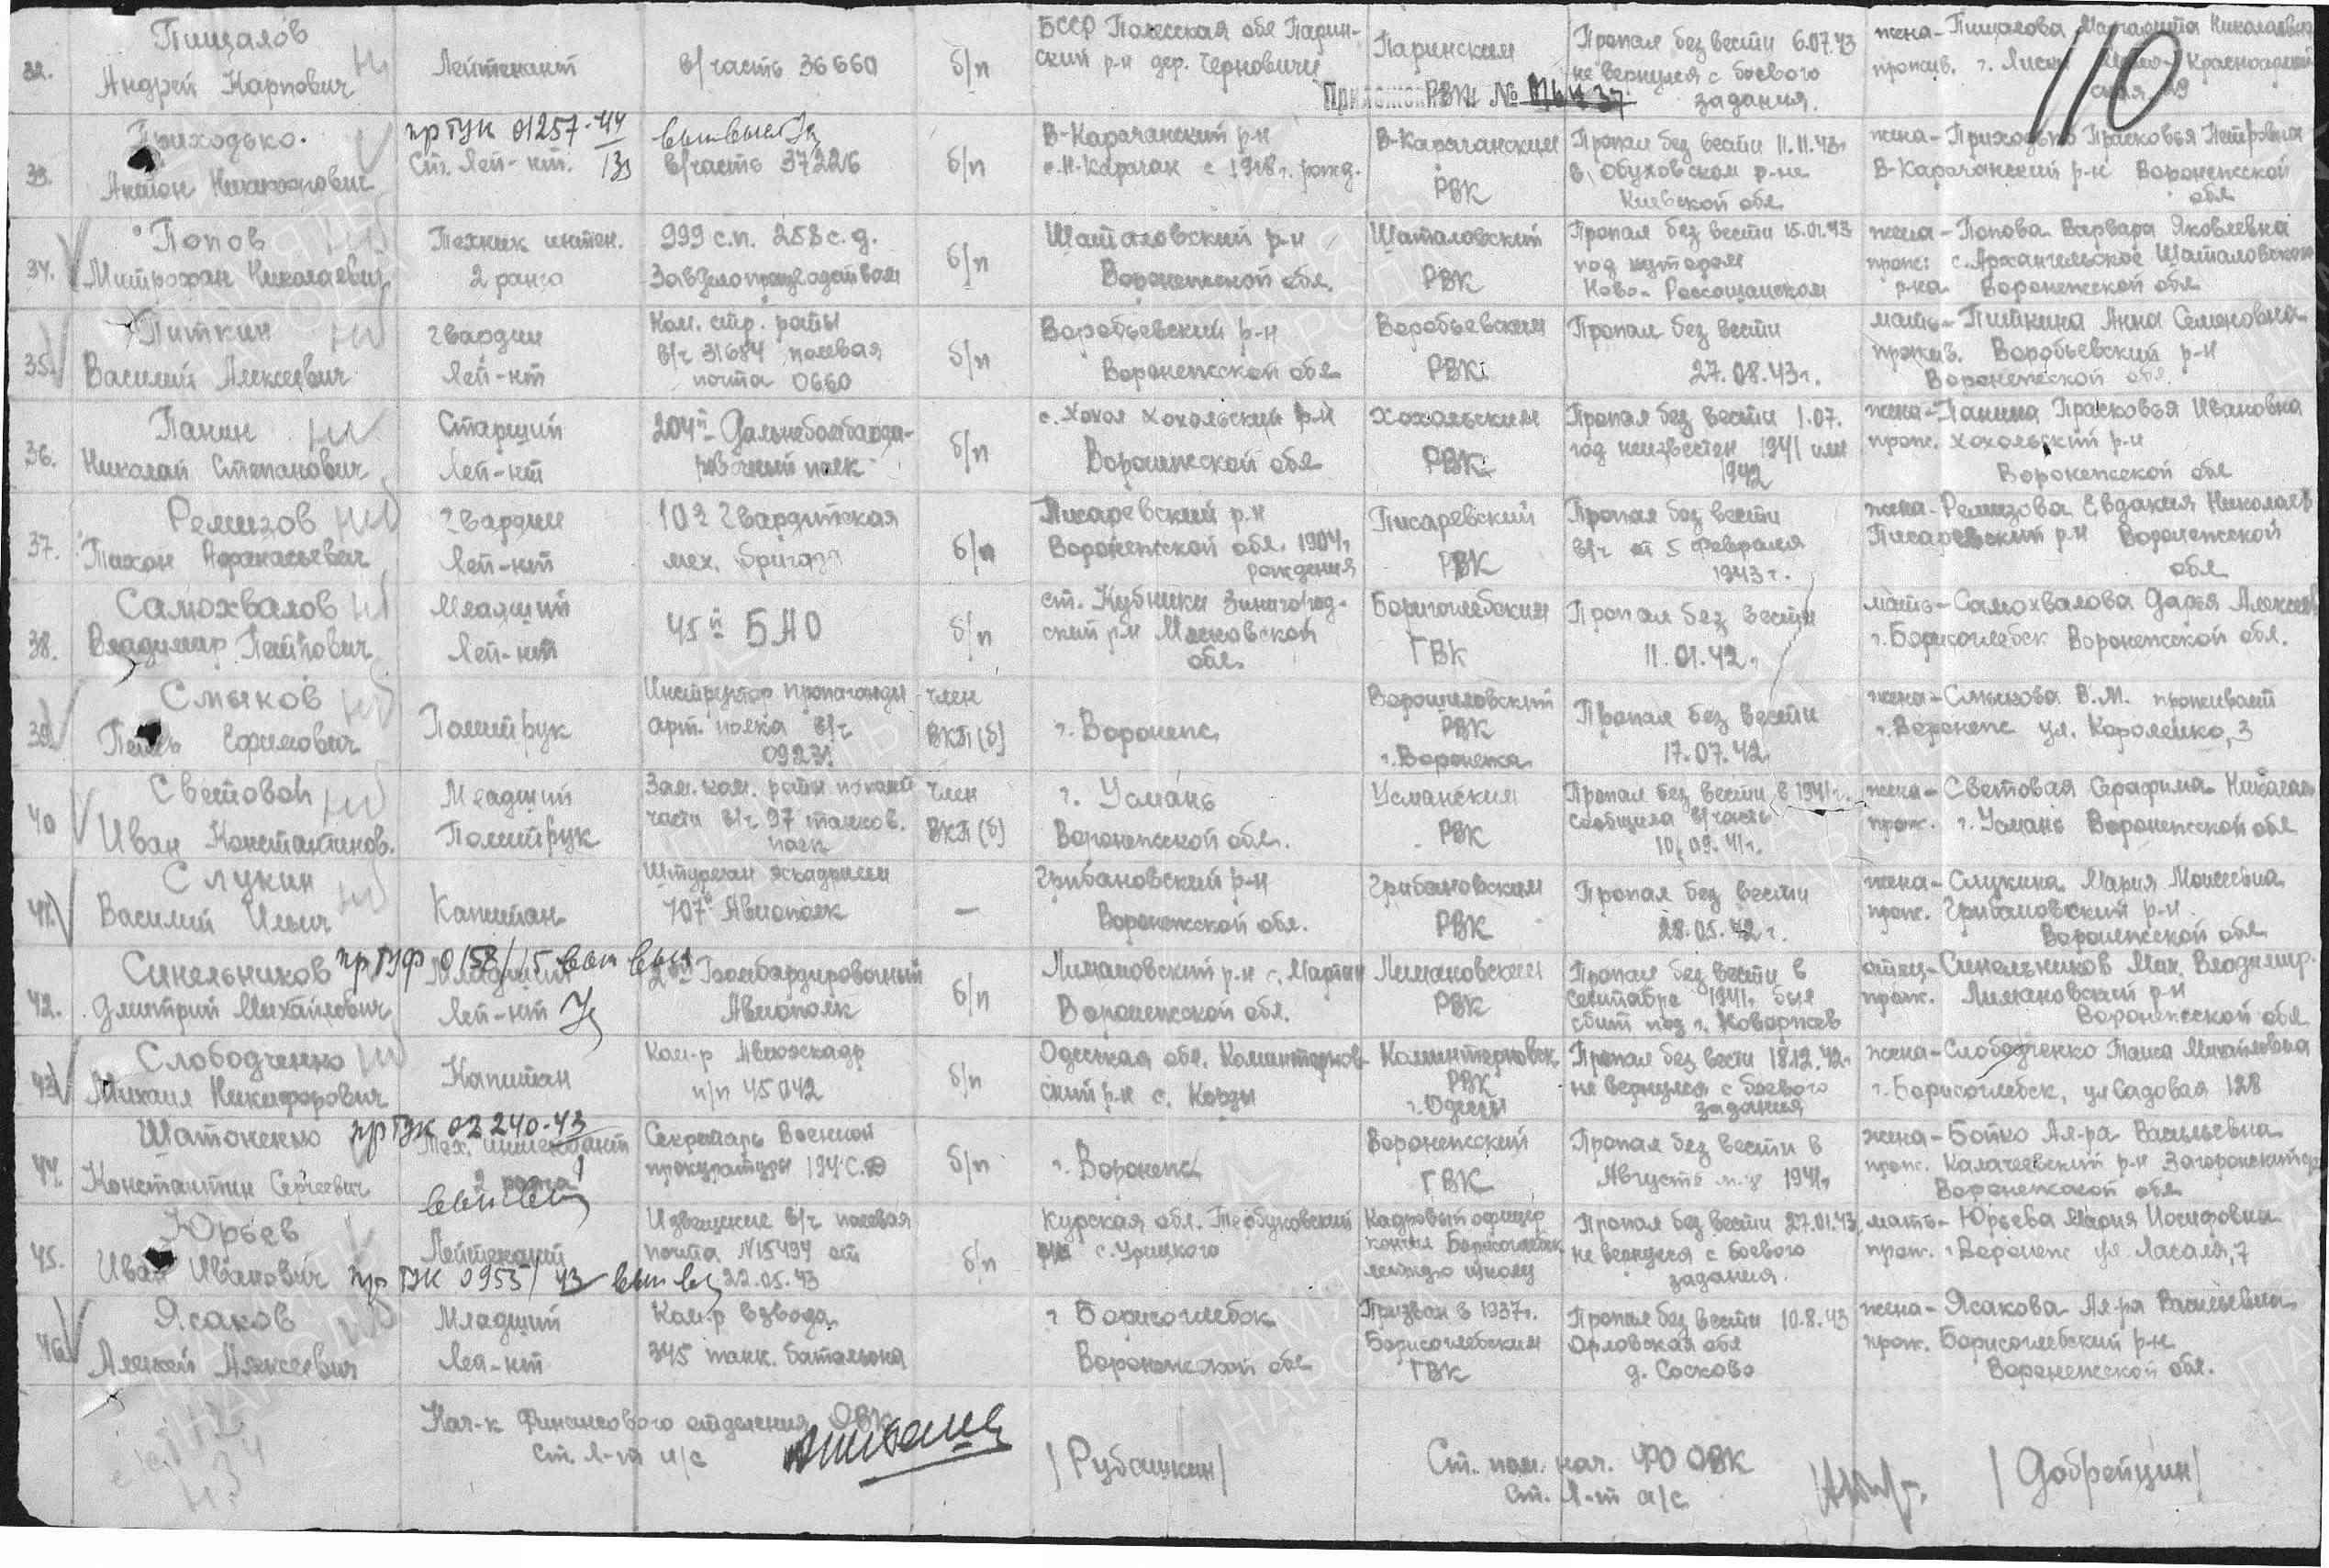 32.
Пищалов
Андрей Карпович
Лейтенант
в/часть 36660
б/п
БССР Полесская обл Парин-
ский р-н дер. Черновичи
Паринским
РВК
Пропал без вести 6.07.43
не вернулся с боевого
задания.
жена - Пищалова Маргарита Николаевна
прожив. г. Лиски
110
Приложение № 37
33.
Приходько.
Антон
пр ГУК 01257-44
Ст. Лей-нт.
в/часть 37226
б/п
В-Карачанский р-н
с. Н-Карачан с 1918 г. рожд.
В-Карачанским
РВК
Пропал без вести 11.11.43г
в Обуховском р-не
Киевской обл
жена - Приходько Прасковья Петровна
В-Карачанский р-н Воронежской
обл
34.
Попов
Митрофан Николаевич
Техник интен.
2 ранга
999 с.п. 258 с.д.
Завделопроизводством
б/п
Шаталовский р-н
Воронежской обл.
Шаталовский
РВК
Пропал без вести 15.01.43
под хутором
Ново-Россошанском
жена - Попова Варвара Яковлевна
прож: с. Архангельское Шаталовского
р-на Воронежской обл
35.
Питкин
Василий Алексеевич
Гвардии
Лей-нт
Ком. стр. роты
в/ч 31684 полевая
почта 0660
б/п
Воробьевский р-н
Воронежской обл
Воробьевским
РВК
Пропал без вести
27.08.43г.
мать - Питкина Анна Семеновна
прожив. Воробьевский р-н
Воронежской обл.
36.
Панин
Николай Степанович
Старший
Лей-нт
204й Дальнебомбарди-
ровочный полк
б/п
с. Хохол Хохольский р-н
Воронежской обл
Хохольским
РВК
Пропал без вести 1.07.
год неизвестен 1941 или
1942
жена - Панина Прасковья Ивановна
прож. Хохольский р-н
Воронежской обл
37.
Ремизов
Тихон Афанасьевич
Гвардии
Лей-нт
102 Гвардитская
мех. бригада
б/п
Писаревский р-н
Воронежской обл. 1904г
рождения
Писаревский
РВК
Пропал без вести
в/ч от 5 февраля
1943 г.
жена - Ремизова Евдакия Николаев
Писаревский р-н Воронежской
обл
38.
Самохвалов
Владимир Петрович
Младший
Лей-нт
45й БАО
б/п
ст. Кубинка Звенигород-
ский р-н Московской
обл.
Борисоглебским
ГВК
Пропал без вести
11.01.42г
мать - Самохвалова Дарья Алексеев
г. Борисоглебск Воронежской обл.
39.
Смыков
Ефимович
Политрук
Инструктор пропаганды
арт. полка в/ч
09231
член
ВКП(б)
г. Воронеж
Ворошиловский
РВК
г. Воронежа
Пропал без вести
17.07.42г
жена - Смыкова В.М. проживает
г. Воронеж ул. Короленко, 3
40
Световой
Иван Константинов.
Младший
Политрук
Зам. ком. роты по полит
части в/ч 97 танков.
полк
член
ВКП(б)
г. Усмань
Воронежской обл.
Усманским
РВК
Пропал без вести в 1941г.
сообщила в/часть
10.09.41г.
жена - Световая Серафима Николаев
прож. г. Усмань Воронежской обл
41.
Слукин
Василий Ильич
Капитан
Штурман эскадрильи
707й Авиополк
—
Грибановский р-н
Воронежской обл.
Грибановским
РВК
Пропал без вести
28.05.42г.
жена - Слукина Мария Моисеевна
прож. Грибановский р-н
Воронежской обл
42.
Синельников
Дмитрий Михайлович
Младший
Лей-нт
Бомбардировочный
Авиополк
б/п
Лимановский р-н с. Мартын
Воронежской обл.
Лимановским
РВК
Пропал без вести в
сентябре 1941г. был
сбит под г. Новоржев
отец - Синельников Мих. Владимир.
прож. Лимановский р-н
Воронежской обл
43
Слободченко
Михаил Никифорович
Капитан
Ком-р Авиоэскадр
п/п 45042
б/п
Одесская обл. Коминтернов-
ский р-н с.
Коминтерновск.
РВК
г. Одессы
Пропал без вести 18.12.42г
не вернулся с боевого
задания
жена - Слободченко Таиса Михайловна
г. Борисоглебск, ул Садовая 128
44.
Шатоненко
Константин Сергеевич
пр ГУК 02240-43
Тех. интендант
2 ранга
Секретарь Военной
прокуратуры 194 С.Д
б/п
г. Воронеж
Воронежский
ГВК
Пропал без вести в
Августе м-це 1941г
жена - Бойко Ал-ра Васильевна
прож. Калачеевский р-н
Воронежской обл
45.
Юрьев
Иван Иванович
Лейтенант
пр ГУК 0955/43
Извещение в/ч полевая
почта N15494 от
22.05.43
б/п
Курская обл. Тербуновский
р-н с. Урицкого
Кадровый офицер
кончил Борисоглебск
летную школу
Пропал без вести 27.01.43
не вернулся с боевого
задания.
мать - Юрьева Мария Иосифовна
прож. г. Воронеж ул. Лассаля, 7
46
Ясаков
Алексей Алексеевич
Младший
Лей-нт
Ком-р взвода
345 танк. батальона
г Борисоглебск
Воронежской обл
Призван в 1937г.
Борисоглебским
ГВК
Пропал без вести 10.8.43
Орловская обл
д. Сосково
жена - Ясакова Ал-ра Васильевна
прож. Борисоглебский р-н
Воронежской обл.
Нач-к Финансового отделения ОВК
Ст. Л-т и/с
/Рубашкин/
Ст. пом. нач. ФО ОВК
Ст. Л-т а/с
/Добрецин/